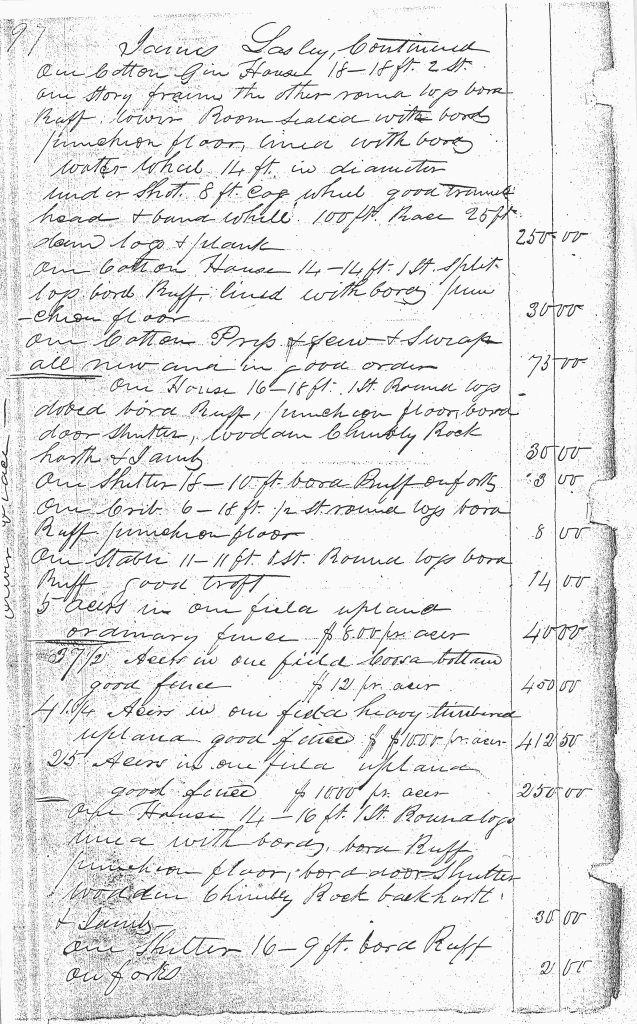 97
James Lasley, Continued
One Cotton Gin House 18-18 ft. 2 St.
one story frame the other round logs bord
Ruff. lower Room sealed with bords
puncheon floor, lined with bords
water wheel 14 ft. in diameter
under shot. 8 ft cog wheel good
head & band whell. 100 ft. Race 25 ft
dam logs & plank 250 00
One Cotton House 14-14 ft. 1 St. split
logs bord Ruff, lined with bords pun
-cheon floor 30 00
One Cotton Press &
all new and in good order 75 00
One House 16-18 ft. 1 St. Round logs
bord Ruff, puncheon floor, bord
door shutter, wooden Chimbly Rock
harth & Jambs 30 00
One Shelter 18-10 ft. bord Ruff on forks 3 00
One Crib 6-18 ft. 1/2 st round logs bord
Ruff puncheon floor 8 00
One Stable 11-11 ft. 1 St. Round logs bord
Ruff good troft 14 00
5 Acers in one field upland
ordinary fence $8.00 pr. acer 40 00
37 1/2 Acers in one field Coosa bottam
good fence $12 pr. acer 450 00
41 1/4 Acers in one field heavy timbered
upland good fence $10 00 pr. acer 412 50
25 Acers in one field upland
good fence $10 00 pr. acer 250 00
One House 14-16 ft. 1 St. Round logs
lined with bords, bord Ruff
puncheon floor, bord door Shutter
wooden Chimbly Rock back harth
& Jambs 30 00
One Shelter 16-9 ft. bord Ruff
on forks 2 00